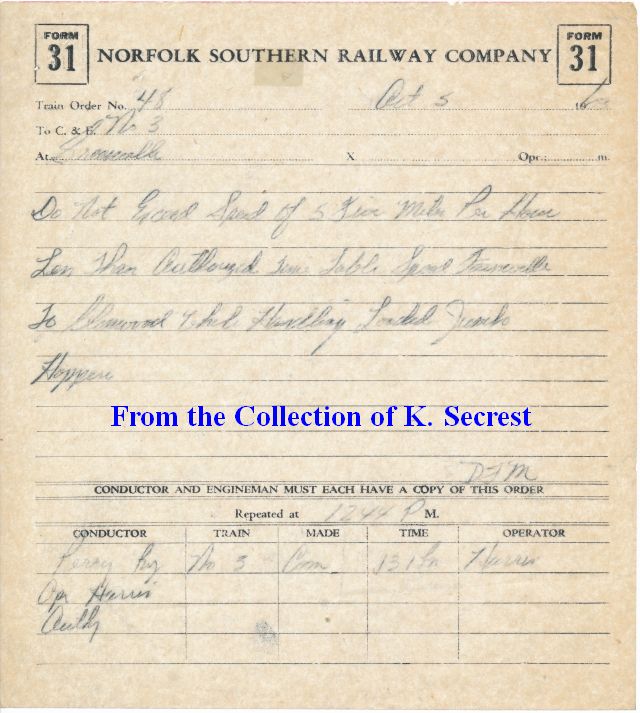 FORM 31 NORFOLK SOUTHERN RAILWAY COMPANY FORM 31
Train Order No. 48 Oct 5 19
To C. & E. No 3
At Greenville X Opr.; m.
Do Not Exceed Speed of 5 Five Miles Per Hour
Less Than Authorized Time Table Speed
To Elmwood While Handling Loaded Jumbo
Hoppers
From the Collection of K. Secrest
DFM
CONDUCTOR AND ENGINEMAN MUST EACH HAVE A COPY OF THIS ORDER
Repeated at 1244 P M.
CONDUCTOR TRAIN MADE TIME OPERATOR
Perry No 3 Com 131 Pm Harris
Opr Harris